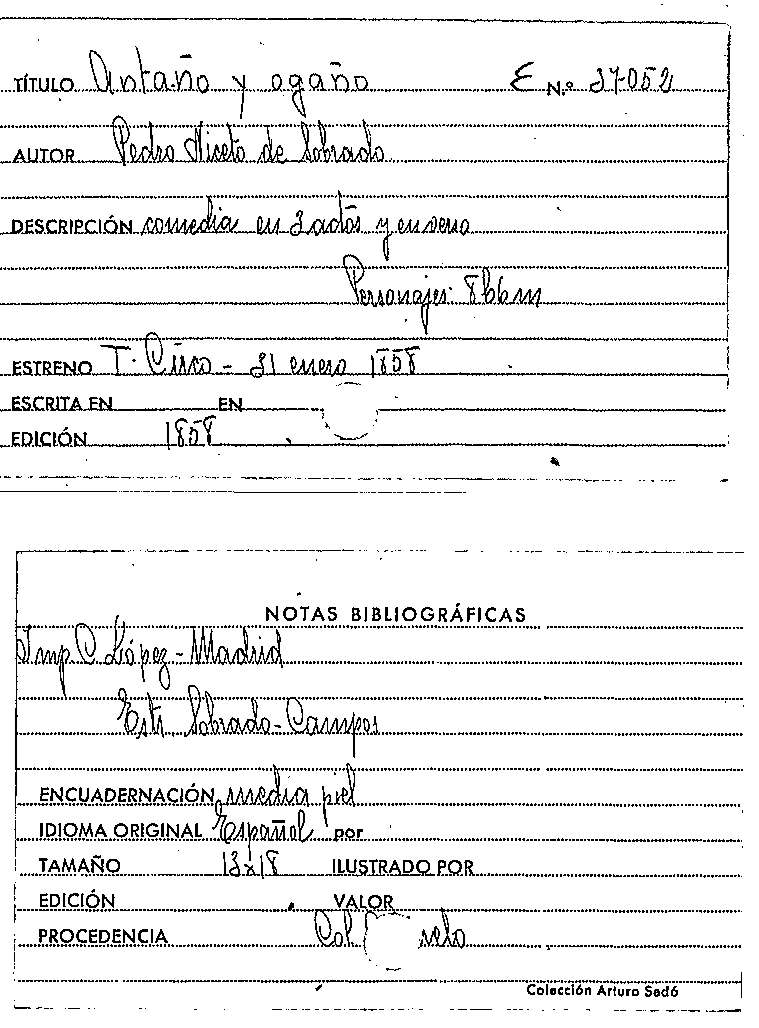 TÍTULO Antaño y ogaño E N.º 37-052
AUTOR Pedro Niceto de Sobrado
DESCRIPCIÓN comedia en 3 actos y en verso
Personajes: 8 h 6 m
ESTRENO T. Circo - 31 enero 1858
ESCRITA EN EN
EDICIÓN 1858
NOTAS BIBLIOGRÁFICAS
Imp C López - Madrid
Estr. Sobrado - Campos
ENCUADERNACIÓN media piel
IDIOMA ORIGINAL Español por
TAMAÑO 13x18 ILUSTRADO POR
EDICIÓN VALOR
PROCEDENCIA Col.
Colección Arturo Sedó